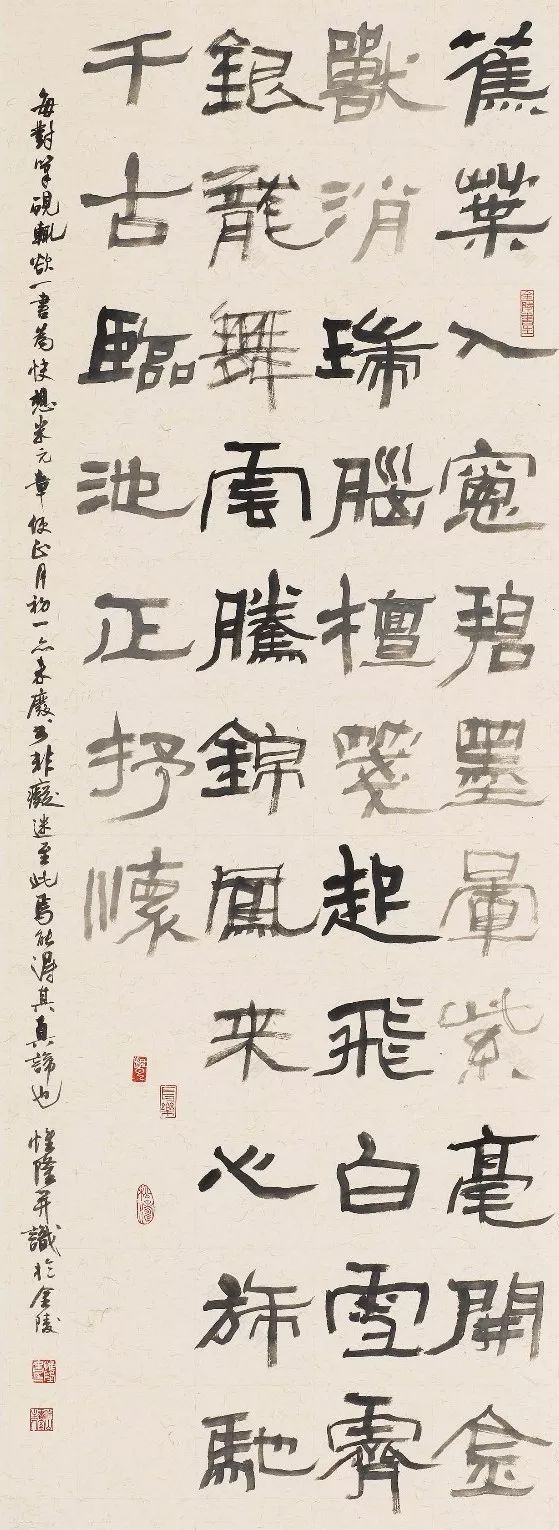 蕉葉入窻碧墨暈紫毫開金
獸消瑞腦檀箋起飛白雪霽
銀龍舞雲騰錦鳳来心旆馳
千古臨池正抒懷
每對筆硯輒欲一書為快想米元章正月初一亦未廢書非癡迷至此焉能得其真諦也 隆并識於金陵